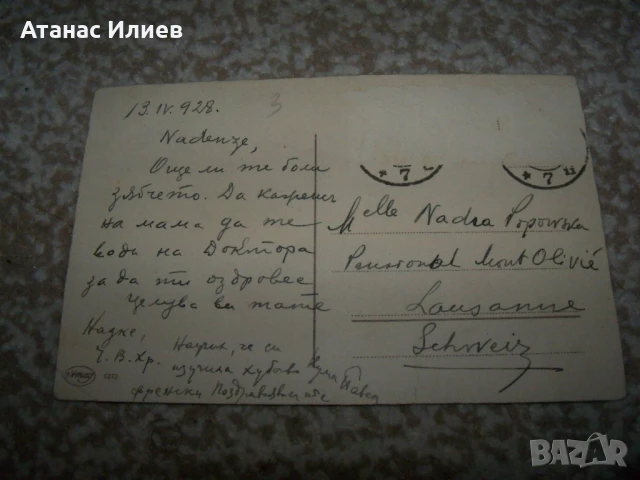 Атанас Илиев
13.IV.928.
3
Nadenze,
Още ли те боли
зъбчето. Да кажеш
на мама да те
води на Доктора
за да ти оздровее
Целува ви тате
Надке,
Ч. В. Хр. Научих, че си
изучила хубаво
френски Поздравявам те
Павел
Mlle Nadia Popowska
Pensionat Mont Olivié
Lausanne
Schweiz
7
7
BAZAR